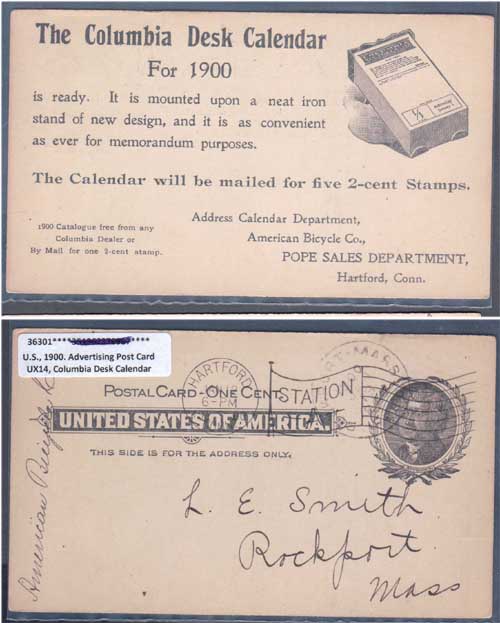 The Columbia Desk Calendar
For 1900
is ready. It is mounted upon a neat iron
stand of new design, and it is as convenient
as ever for memorandum purposes.
The Calendar will be mailed for five 2-cent Stamps.
1900 Catalogue free from any
Columbia Dealer or
By Mail for one 2-cent stamp.
Address Calendar Department,
American Bicycle Co.,
POPE SALES DEPARTMENT,
Hartford, Conn.
36301****
U.S., 1900. Advertising Post Card
UX14, Columbia Desk Calendar
HARTFORD
6-PM
STATION
A
MASS
POSTAL CARD - ONE CENT.
UNITED STATES OF AMERICA.
THIS SIDE IS FOR THE ADDRESS ONLY.
American Bicycle
L. E. Smith
Rockport
Mass